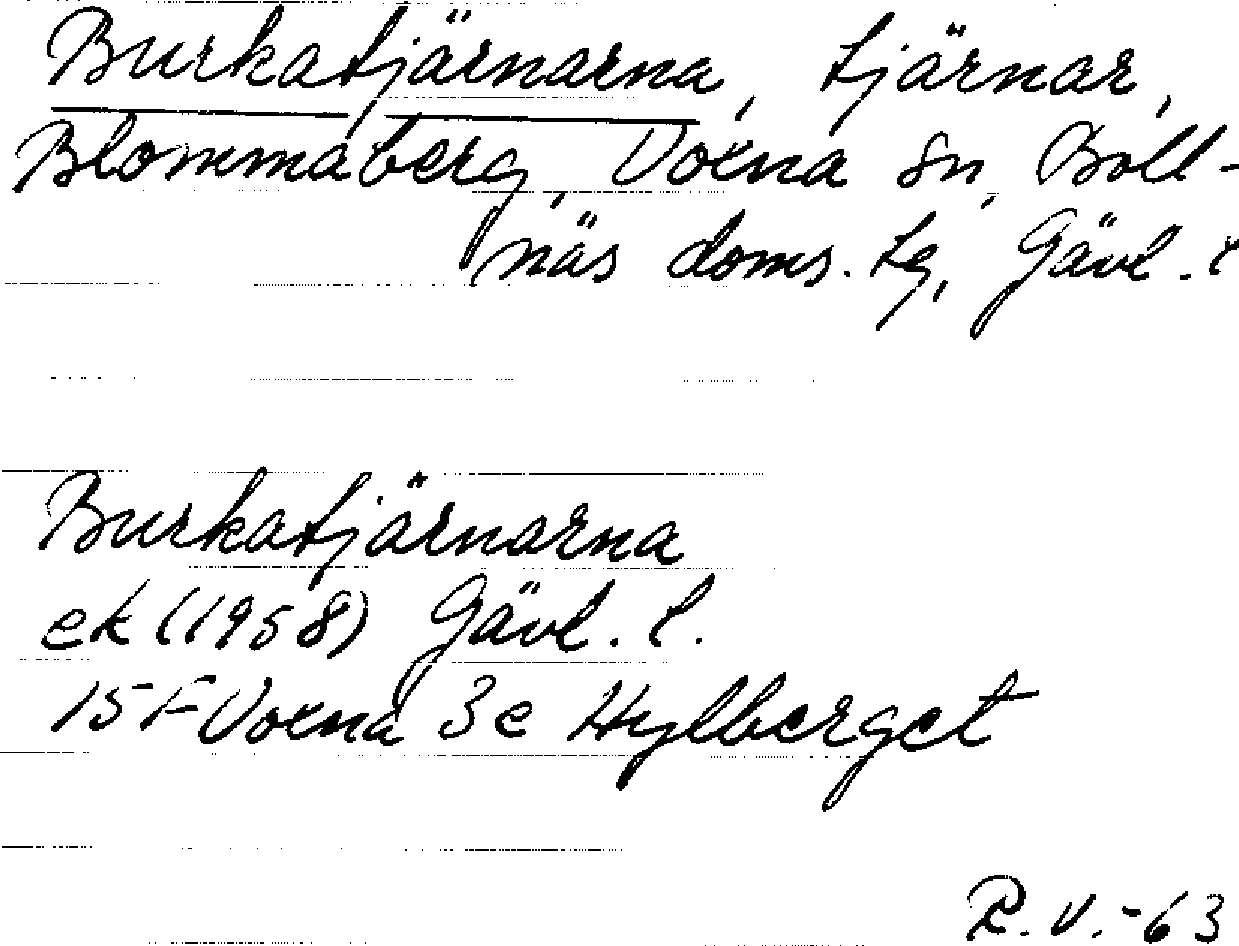 Burkatjärnarna, tjärnar,
Blommaberg, Voxna sn, Boll-
näs doms. tg, Gävl. l
Burkatjärnarna
ek (1958) Gävl. l.
15 F Voxna 3e Hylberget
R.V.-63